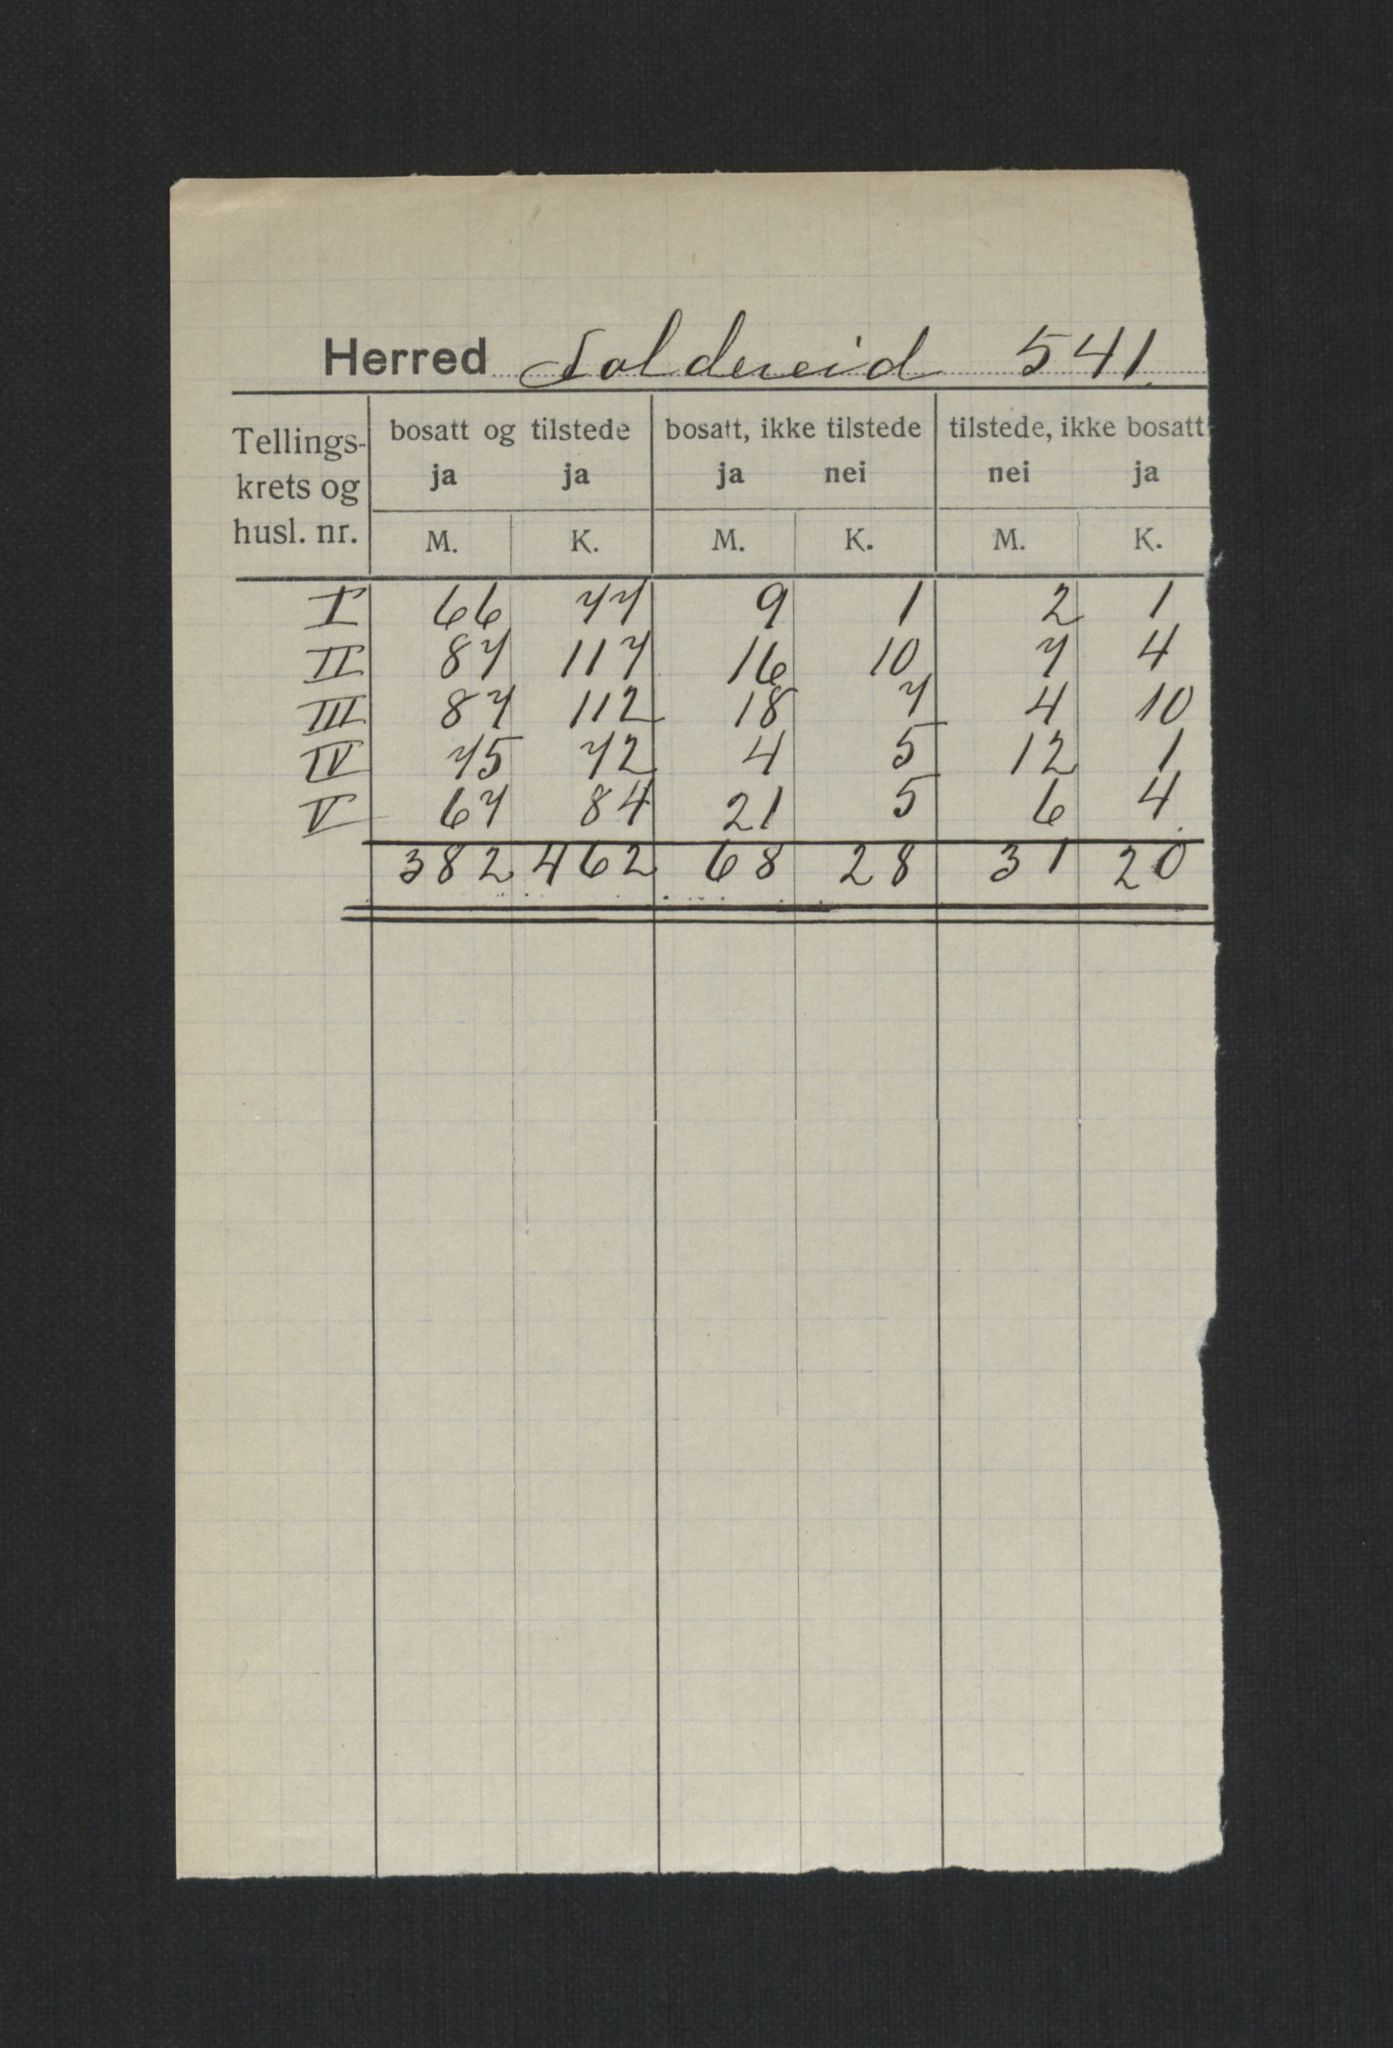 Herred Foldereid 541
Tellings-krets og husl. nr. bosatt og tilstede bosatt, ikke tilstede tilstede, ikke bosatt
ja ja ja nei nei ja
M. K. M. K. M. K.
I 66 77 9 1 2 1
II 87 117 16 10 7 4
III 87 112 18 7 4 10
IV 75 72 4 5 12 1
V 67 84 21 5 6 4
382 462 68 28 31 20